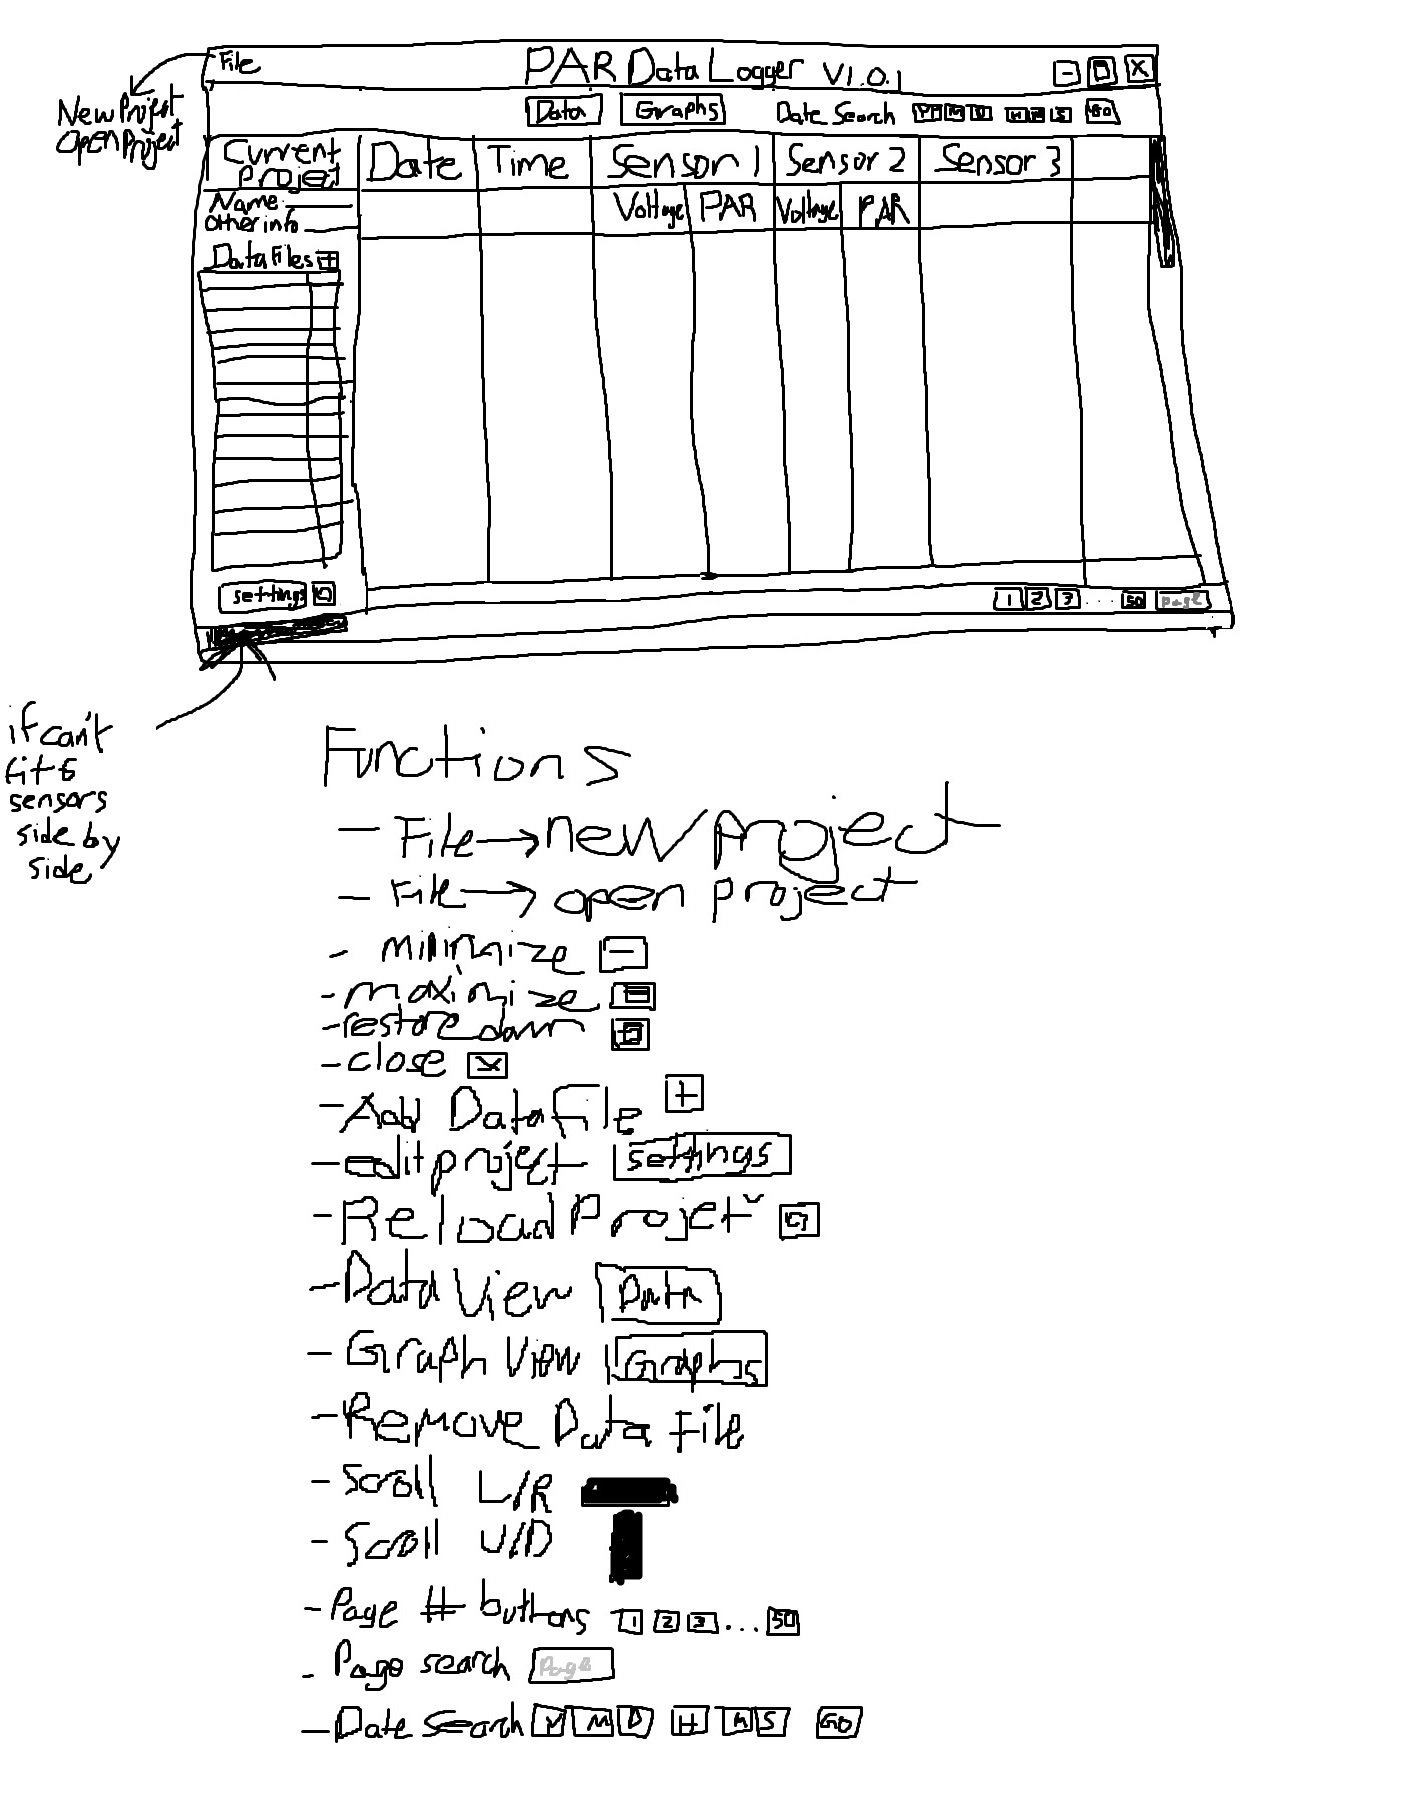 File
PAR Data Logger V1.0.1
- X
New Project
open Project
Data Graphs Date Search Y M D H M S GO
Current Projet
Date Time Sensor 1 Sensor 2 Sensor 3
Name
other info
Voltage PAR Voltage PAR
Data Files +
settings
1 2 3 ... 50 Page
if can't
fit 5
sensors
side by
side
Functions
- File → new project
- File → open project
- minimize -
- maximize
- restore down
- close X
- Add Data File +
- edit project settings
- Reload Projet
- Data View Data
- Graph View Graphs
- Remove Data file
- Scroll L/R
- Scroll U/D
- Page # buttons 1 2 3 ... 50
- Page search Page
- Date Search Y M D H M S GO